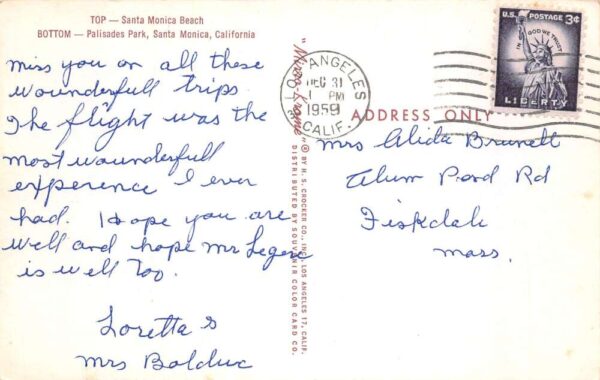 TOP — Santa Monica Beach
BOTTOM — Palisades Park, Santa Monica, California
miss you on all these
wounderfull trips.
The flight was the
most wounderfull
experence I ever
had. Hope you are
well and hope Mr Legere
is well too.
Loretta &
Mrs Bolduc
"Mirro-Krome" ® BY H. S. CROCKER CO., INC., LOS ANGELES 17, CALIF.
DISTRIBUTED BY SOUVENIR COLOR CARD CO.
LOS ANGELES
DEC 31
1 PM
1959
CALIF.
U.S. POSTAGE 3¢
IN GOD WE TRUST
LIBERTY
ADDRESS ONLY
Mrs Alida Brunell
Alum Pond Rd
Fiskdale
Mass.